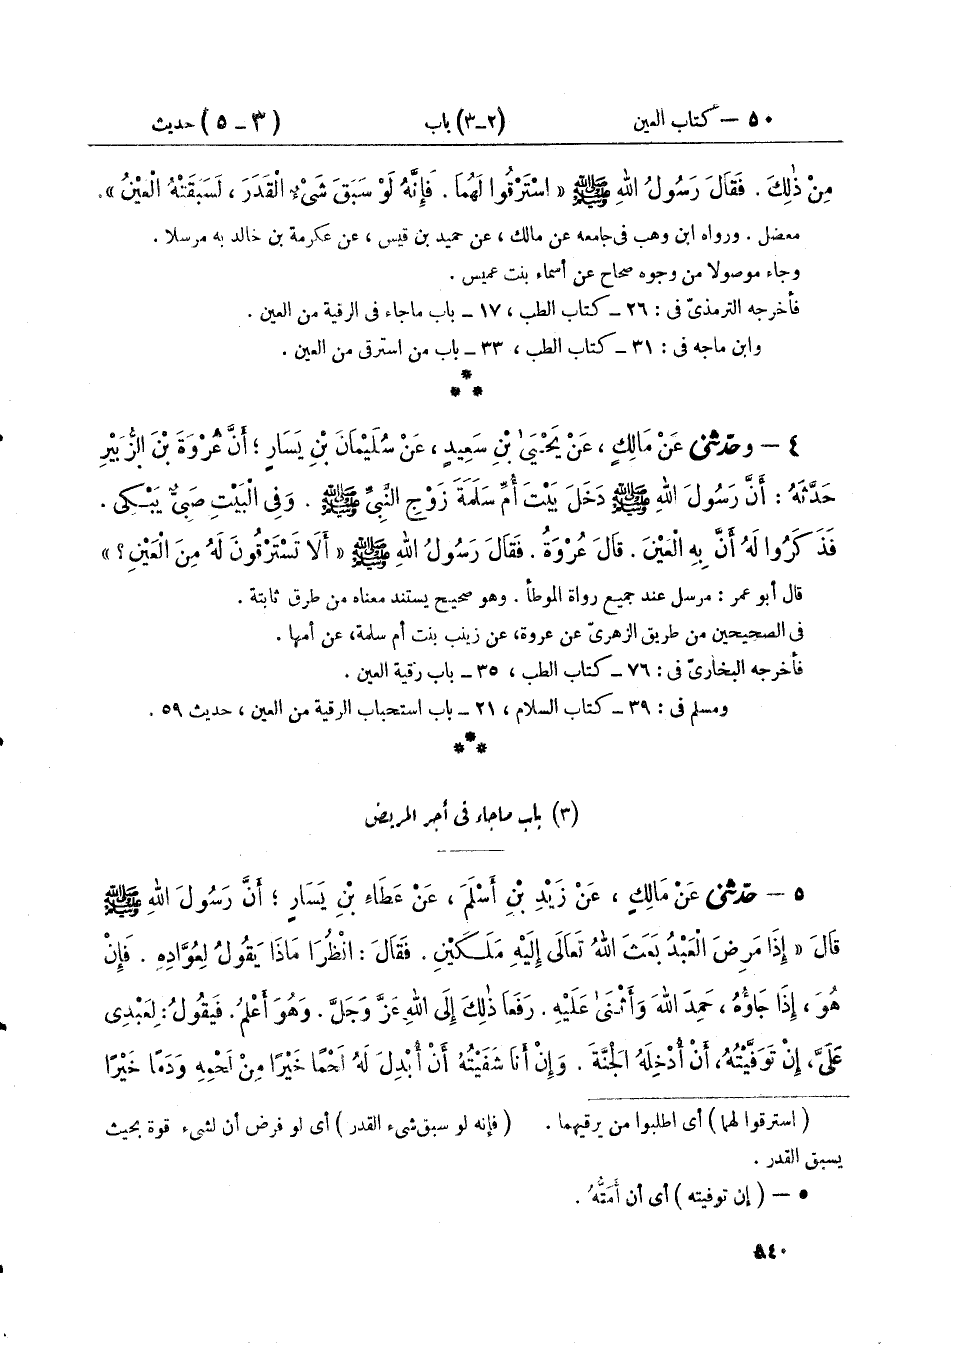 ٥٠ – كتاب العين (٢-٣) باب (٣ – ٥) حديث
مِنْ ذٰلِكَ . فَقَالَ رَسُولُ اللهِ ﷺ « اسْتَرْقُوا لَهُمَا . فَإِنَّهُ لَوْ سَبَقَ شَىْءٌ الْقَدَرَ ، لَسَبَقَتْهُ الْعَيْنُ » .
معضل . ورواه ابن وهب فى جامعه عن مالك ، عن حميد بن قيس ، عن عكرمة بن خالد به مرسلا .
وجاء موصولا من وجوه صحاح عن أسماء بنت عميس .
فأخرجه الترمذىّ فى : ٢٦ ـ كتاب الطب ، ١٧ ـ باب ماجاء فى الرقية من العين .
وابن ماجه فى : ٣١ ـ كتاب الطب ، ٣٣ ـ باب من استرقى من العين .
* * *
٤ – وحدّثنى عَنْ مَالِكٍ ، عَنْ يَحْيَىٰ بْنِ سَعِيدٍ ، عَنْ سُلَيْمَانَ بْنِ يَسَارٍ ؛ أَنَّ عُرْوَةَ بْنَ الزُّبَيْرِ
حَدَّثَهُ : أَنَّ رَسُولَ اللهِ ﷺ دَخَلَ بَيْتَ أُمِّ سَلَمَةَ زَوْجِ النَّبِيِّ ﷺ . وَفِى الْبَيْتِ صَبِىٌّ يَبْكِى .
فَذَكَرُوا لَهُ أَنَّ بِهِ الْعَيْنَ . قَالَ عُرْوَةُ . فَقَالَ رَسُولُ اللهِ ﷺ « أَلَا تَسْتَرْقُونَ لَهُ مِنَ الْعَيْنِ ؟ »
قال أبو عمر : مرسل عند جميع رواة الموطأ . وهو صحيح يستند معناه من طرق ثابتة .
فى الصحيحين من طريق الزهرىّ عن عروة، عن زينب بنت أم سلمة، عن أمها .
فأخرجه البخارىّ فى : ٧٦ ـ كتاب الطب ، ٣٥ ـ باب رقية العين .
ومسلم فى : ٣٩ ـ كتاب السلام ، ٢١ ـ باب استحباب الرقية من العين ، حديث ٥٩ .
* * *
(٣) باب ماجاء فى أجر المريض
٥ – حدّثنى عَنْ مَالِكٍ ، عَنْ زَيْدِ بْنِ أَسْلَمَ ، عَنْ عَطَاءِ بْنِ يَسَارٍ ؛ أَنَّ رَسُولَ اللهِ ﷺ
قَالَ « إِذَا مَرِضَ الْعَبْدُ بَعَثَ اللهُ تَعَالَى إِلَيْهِ مَلَكَيْنِ . فَقَالَ : انْظُرَا مَاذَا يَقُولُ لِعُوَّادِهِ . فَإِنْ
هُوَ ، إِذَا جَاؤُهُ ، حَمِدَ اللهَ وَأَثْنَىٰ عَلَيْهِ . رَفَعَا ذٰلِكَ إِلَى اللهِ عَزَّ وَجَلَّ . وَهُوَ أَعْلَمُ . فَيَقُولُ : لِعَبْدِى
عَلَىَّ، إِنْ تَوَفَّيْتُهُ، أَنْ أُدْخِلَهُ الْجَنَّةَ . وَإِنْ أَنَا شَفَيْتُهُ أَنْ أُبْدِلَ لَهُ لَحْمًا خَيْرًا مِنْ لَحْمِهِ وَدَمًا خَيْرًا
( استرقوا لهما ) أى اطلبوا من يرقيهما . ( فإنه لو سبق شىء القدر ) أى لو فرض أن لشىء قوة بحيث
يسبق القدر .
٥ – ( إن توفيته ) أى أن أَمَتُّهُ .
٩٤٠